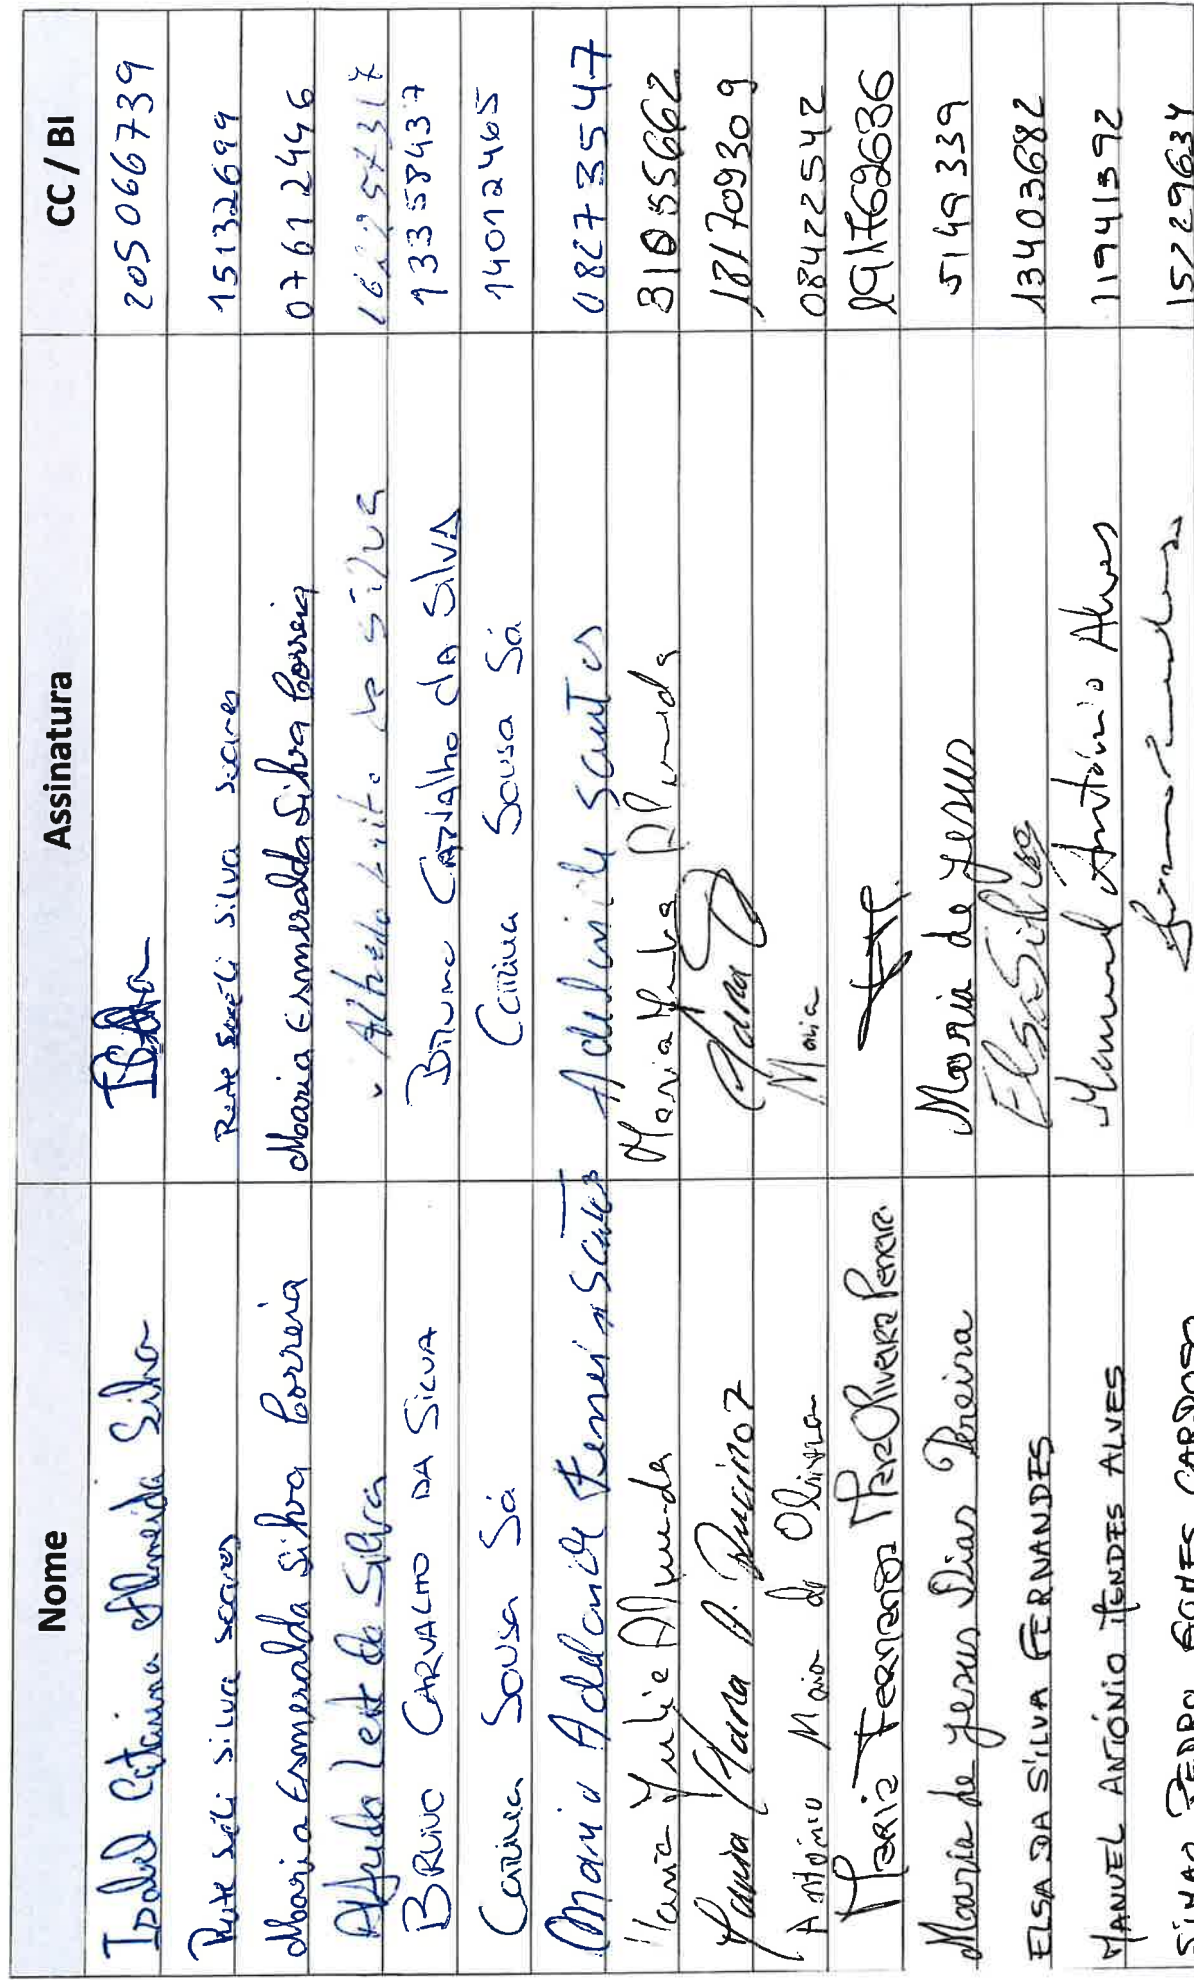 Nome Assinatura CC / BI
Isabel Catarina Almeida Silva 205066739
Silva Soares Silva Soares 15132699
Maria Esmeralda Silva Correia Maria Esmeralda Silva Correia 07612446
Alfredo Leite da Silva Alfredo Leite da Silva
BRUNO CARVALHO DA SILVA Bruno Carvalho da Silva 13358437
Carina Sousa Sá Carina Sousa Sá 14012465
Maria Adelaide Santos Santos 08273547
Maria Almeida Maria Almeida
Maria Maria 181709309
António Maia de Oliveira Maia 08422542
Maria Fernanda Oliveira Pereira
Maria de Jesus Dias Pereira Maria de Jesus 5149339
ELSA DA SILVA FERNANDES Elsa Silva 13403682
MANUEL ANTÓNIO MENDES ALVES Manuel António Alves 11941592
PEDRO GOMES CARDOSO 15229634